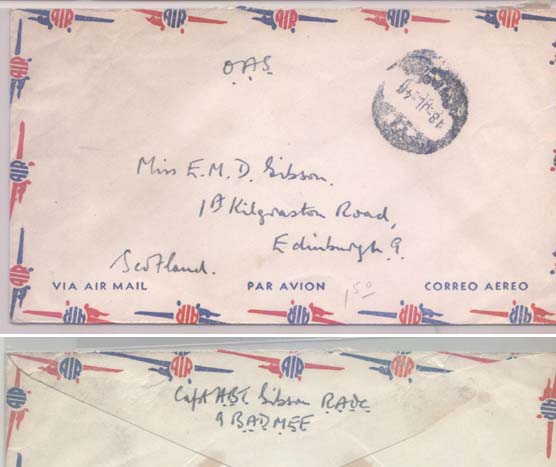 OAS
18 - 49
Miss E.M.D. Gibson.
1A Kilgraston Road,
Edinburgh 9.
Scotland.
VIA AIR MAIL PAR AVION CORREO AEREO
1 50
AIR
Capt Gibson RADC
9 BAD MEF